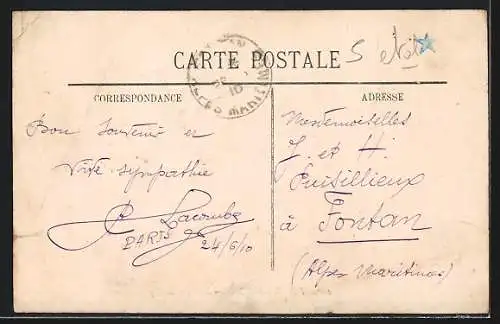 CARTE POSTALE
CORRESPONDANCE
Bon Souvenir et
Vive sympathie
Lacombe
PARIS
24/6/10
ADRESSE
Mesdemoiselles
J. et H.
Puisillieux
à Fontan
(Alpes Maritimes)